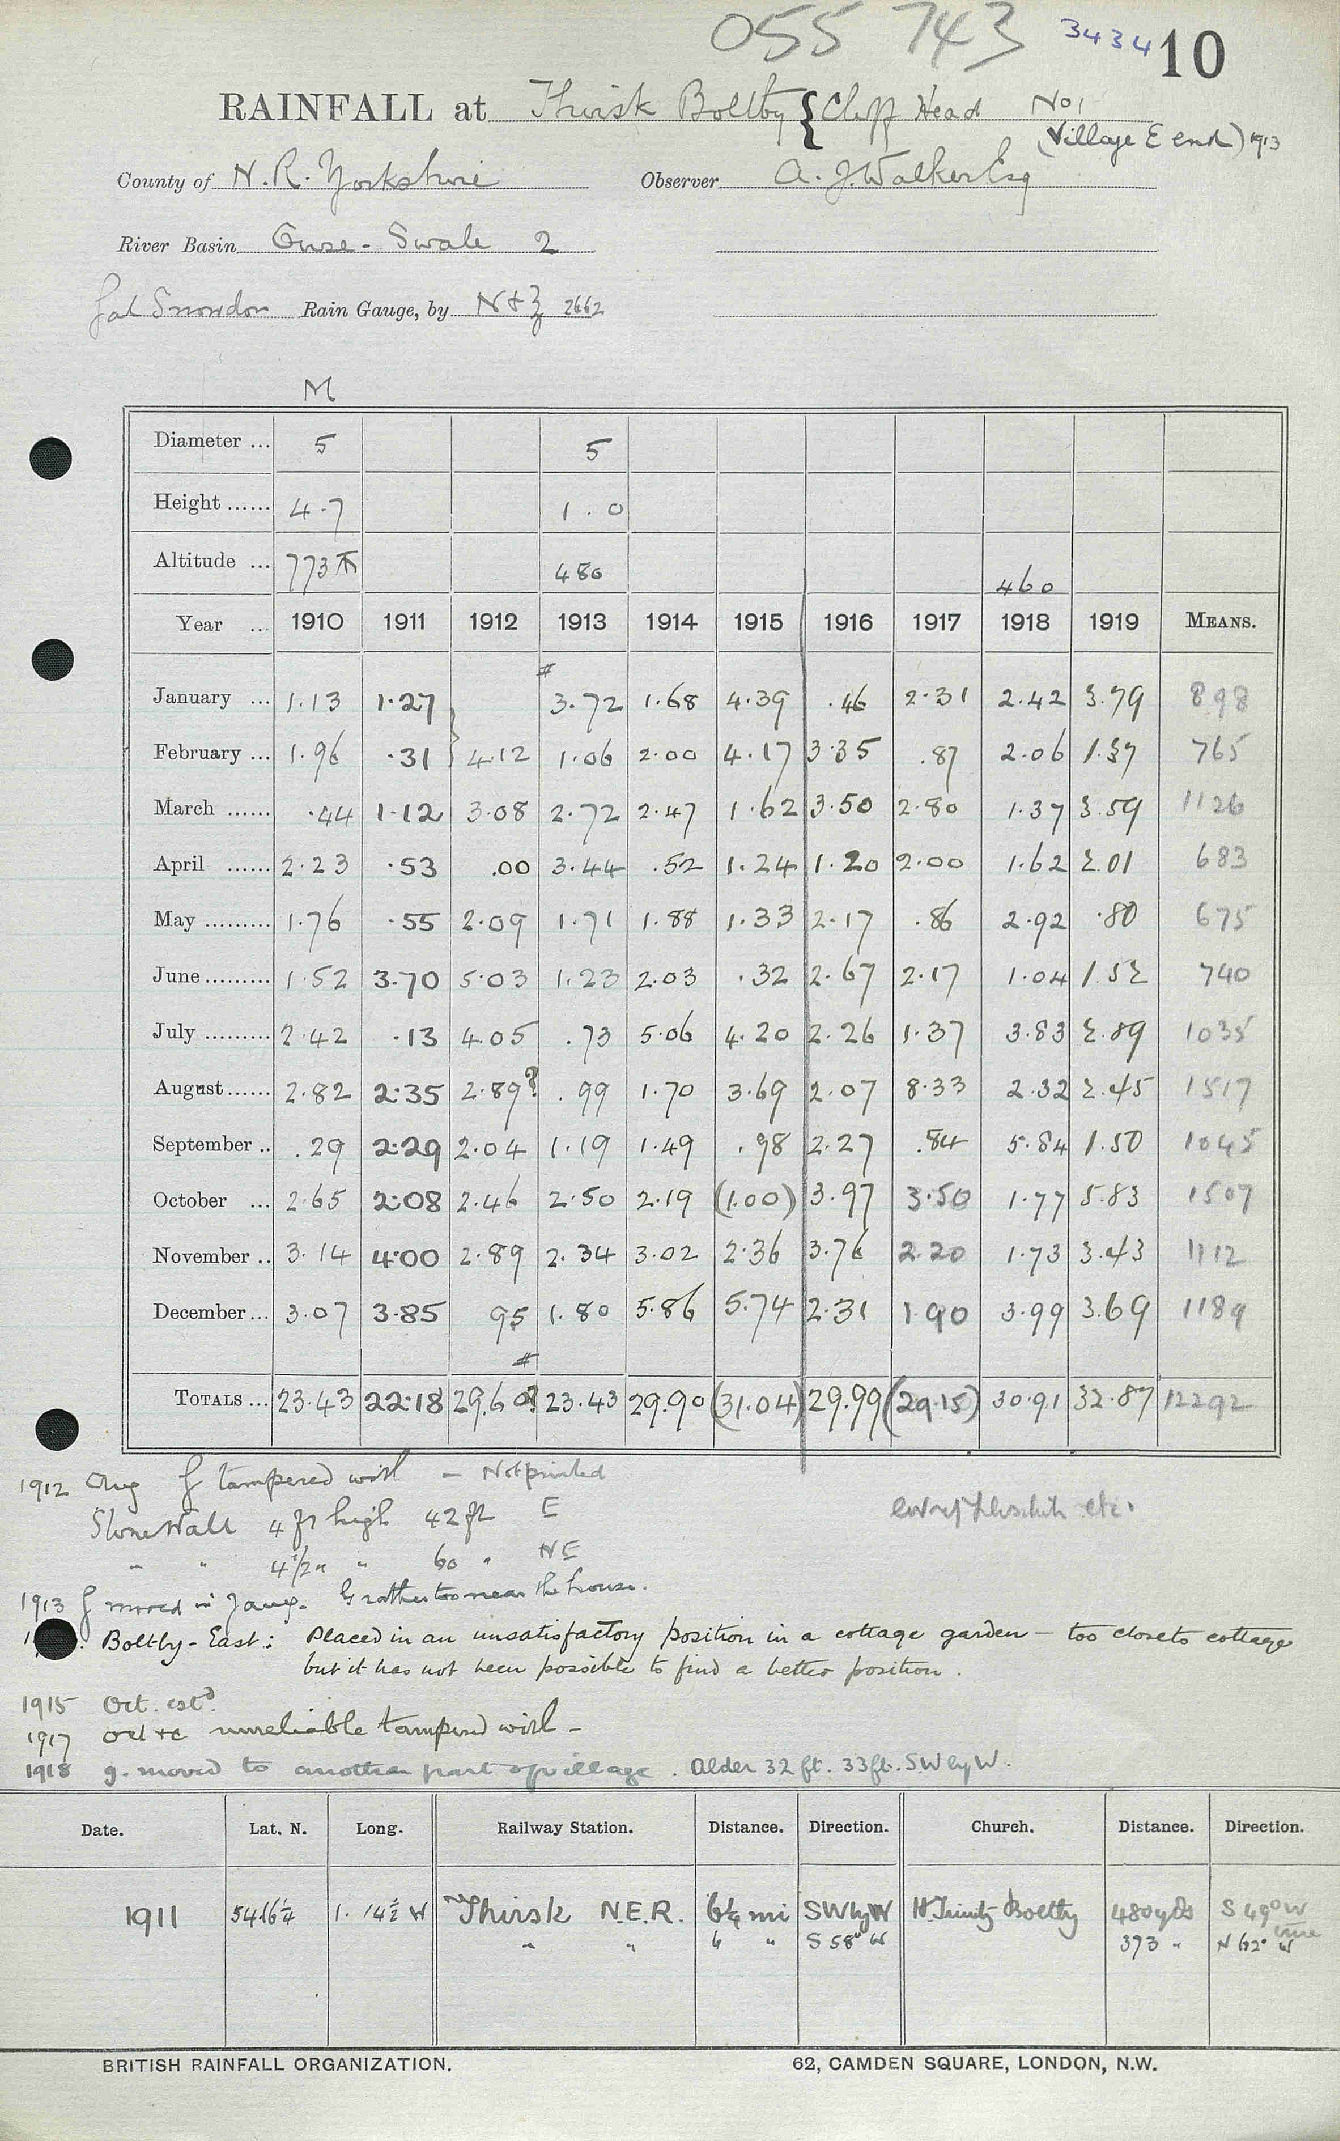 055 743 3434 10
RAINFALL at Thirsk Boltby { Cliff Head No 1
(Village E end) 1913
County of N. R. Yorkshire Observer A. J. Walker Esq
River Basin Ouse - Swale 2
Snowdon Rain Gauge, by N & Z 2662
M
Diameter ... 5 5
Height ...... 4.7 1.0
Altitude ... 773 480 460
Year ... 1910 1911 1912 1913 1914 1915 1916 1917 1918 1919 MEANS.
January ... 1.13 1.27 3.72 1.68 4.39 .46 2.31 2.42 3.79 898
February ... 1.96 .31 } 4.12 1.06 2.00 4.17 3.35 .87 2.06 1.37 765
March ...... .44 1.12 3.08 2.72 2.47 1.62 3.50 2.80 1.37 3.59 1126
April ...... 2.23 .53 .00 3.44 .52 1.24 1.20 2.00 1.62 2.01 683
May ......... 1.76 .55 2.09 1.71 1.88 1.33 2.17 .86 2.92 .80 675
June ......... 1.52 3.70 5.03 1.23 2.03 .32 2.67 2.17 1.04 1.52 740
July ......... 2.42 .13 4.05 .73 5.06 4.20 2.26 1.37 3.83 2.89 1035
August ...... 2.82 2.35 2.89? .99 1.70 3.69 2.07 8.33 2.32 2.45 1517
September .. .29 2.29 2.04 1.19 1.49 .98 2.27 .84 5.84 1.50 1045
October ... 2.65 2.08 2.46 2.50 2.19 (1.00) 3.97 3.50 1.77 5.83 1507
November .. 3.14 4.00 2.89 2.34 3.02 2.36 3.76 2.20 1.73 3.43 1112
December ... 3.07 3.85 95 1.80 5.86 5.74 2.31 1.90 3.99 3.69 1189
TOTALS ... 23.43 22.18 29.60? 23.43 29.90 (31.04) 29.99 (29.15) 30.91 32.87 12292
1912 Aug g tampered with - Not printed
Stone Wall 4 ft high 42 ft E
" " 4 1/2 " " 60 " NE
1913 g moved in Jany. G rather too near the house.
Boltby - East: Placed in an unsatisfactory position in a cottage garden - too close to cottage
but it has not been possible to find a better position.
1915 Oct. estd.
1917 Oct &c unreliable tampered with -
1918 g. moved to another part of village. Alder 32 ft. 33 ft. SW by W.
Date. Lat. N. Long. Railway Station. Distance. Direction. Church. Distance. Direction.
1911 54 16 1/4 1. 14 1/2 W Thirsk N.E.R. 6 1/4 mi SW by W H. Trinity Boltby 480 yds S 49° W
" " " " S 58° W 373 " N 62° W true
BRITISH RAINFALL ORGANIZATION. 62, CAMDEN SQUARE, LONDON, N.W.